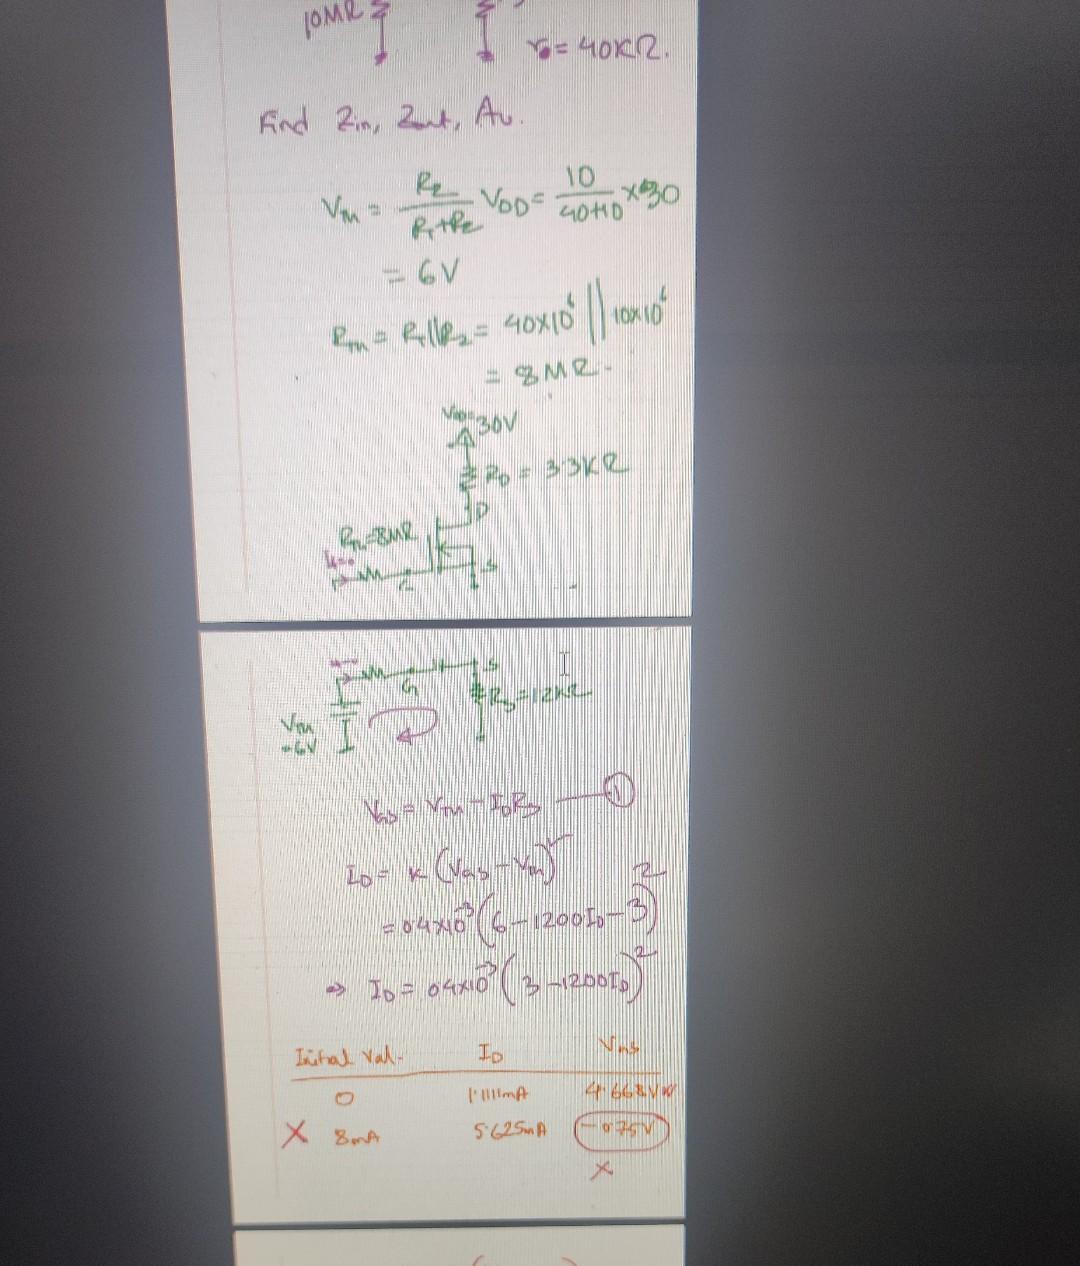 10MΩ
r₀ = 40KΩ.
Find Zin, Zout, Av.
VTh = R2 / (R1+R2) VDD = 10 / (40+10) × 30
= 6V
RTh = R1||R2 = 40×10⁶ || 10×10⁶
= 8MΩ.
VDD=30V
RD = 3.3KΩ
D
RTh=8MΩ
S
G
S
G
RS=1.2KΩ
VTh
=6V
VGS = VTh - IDRS — ①
ID = K (VGS - VTh)²
= 0.4×10⁻³ (6 - 1200ID - 3)²
⇒ ID = 0.4×10⁻³ (3 - 1200ID)²
Initial Val. ID VGS
0 1.1111mA 4.668V
X 8mA 5.625mA -0.75V
X